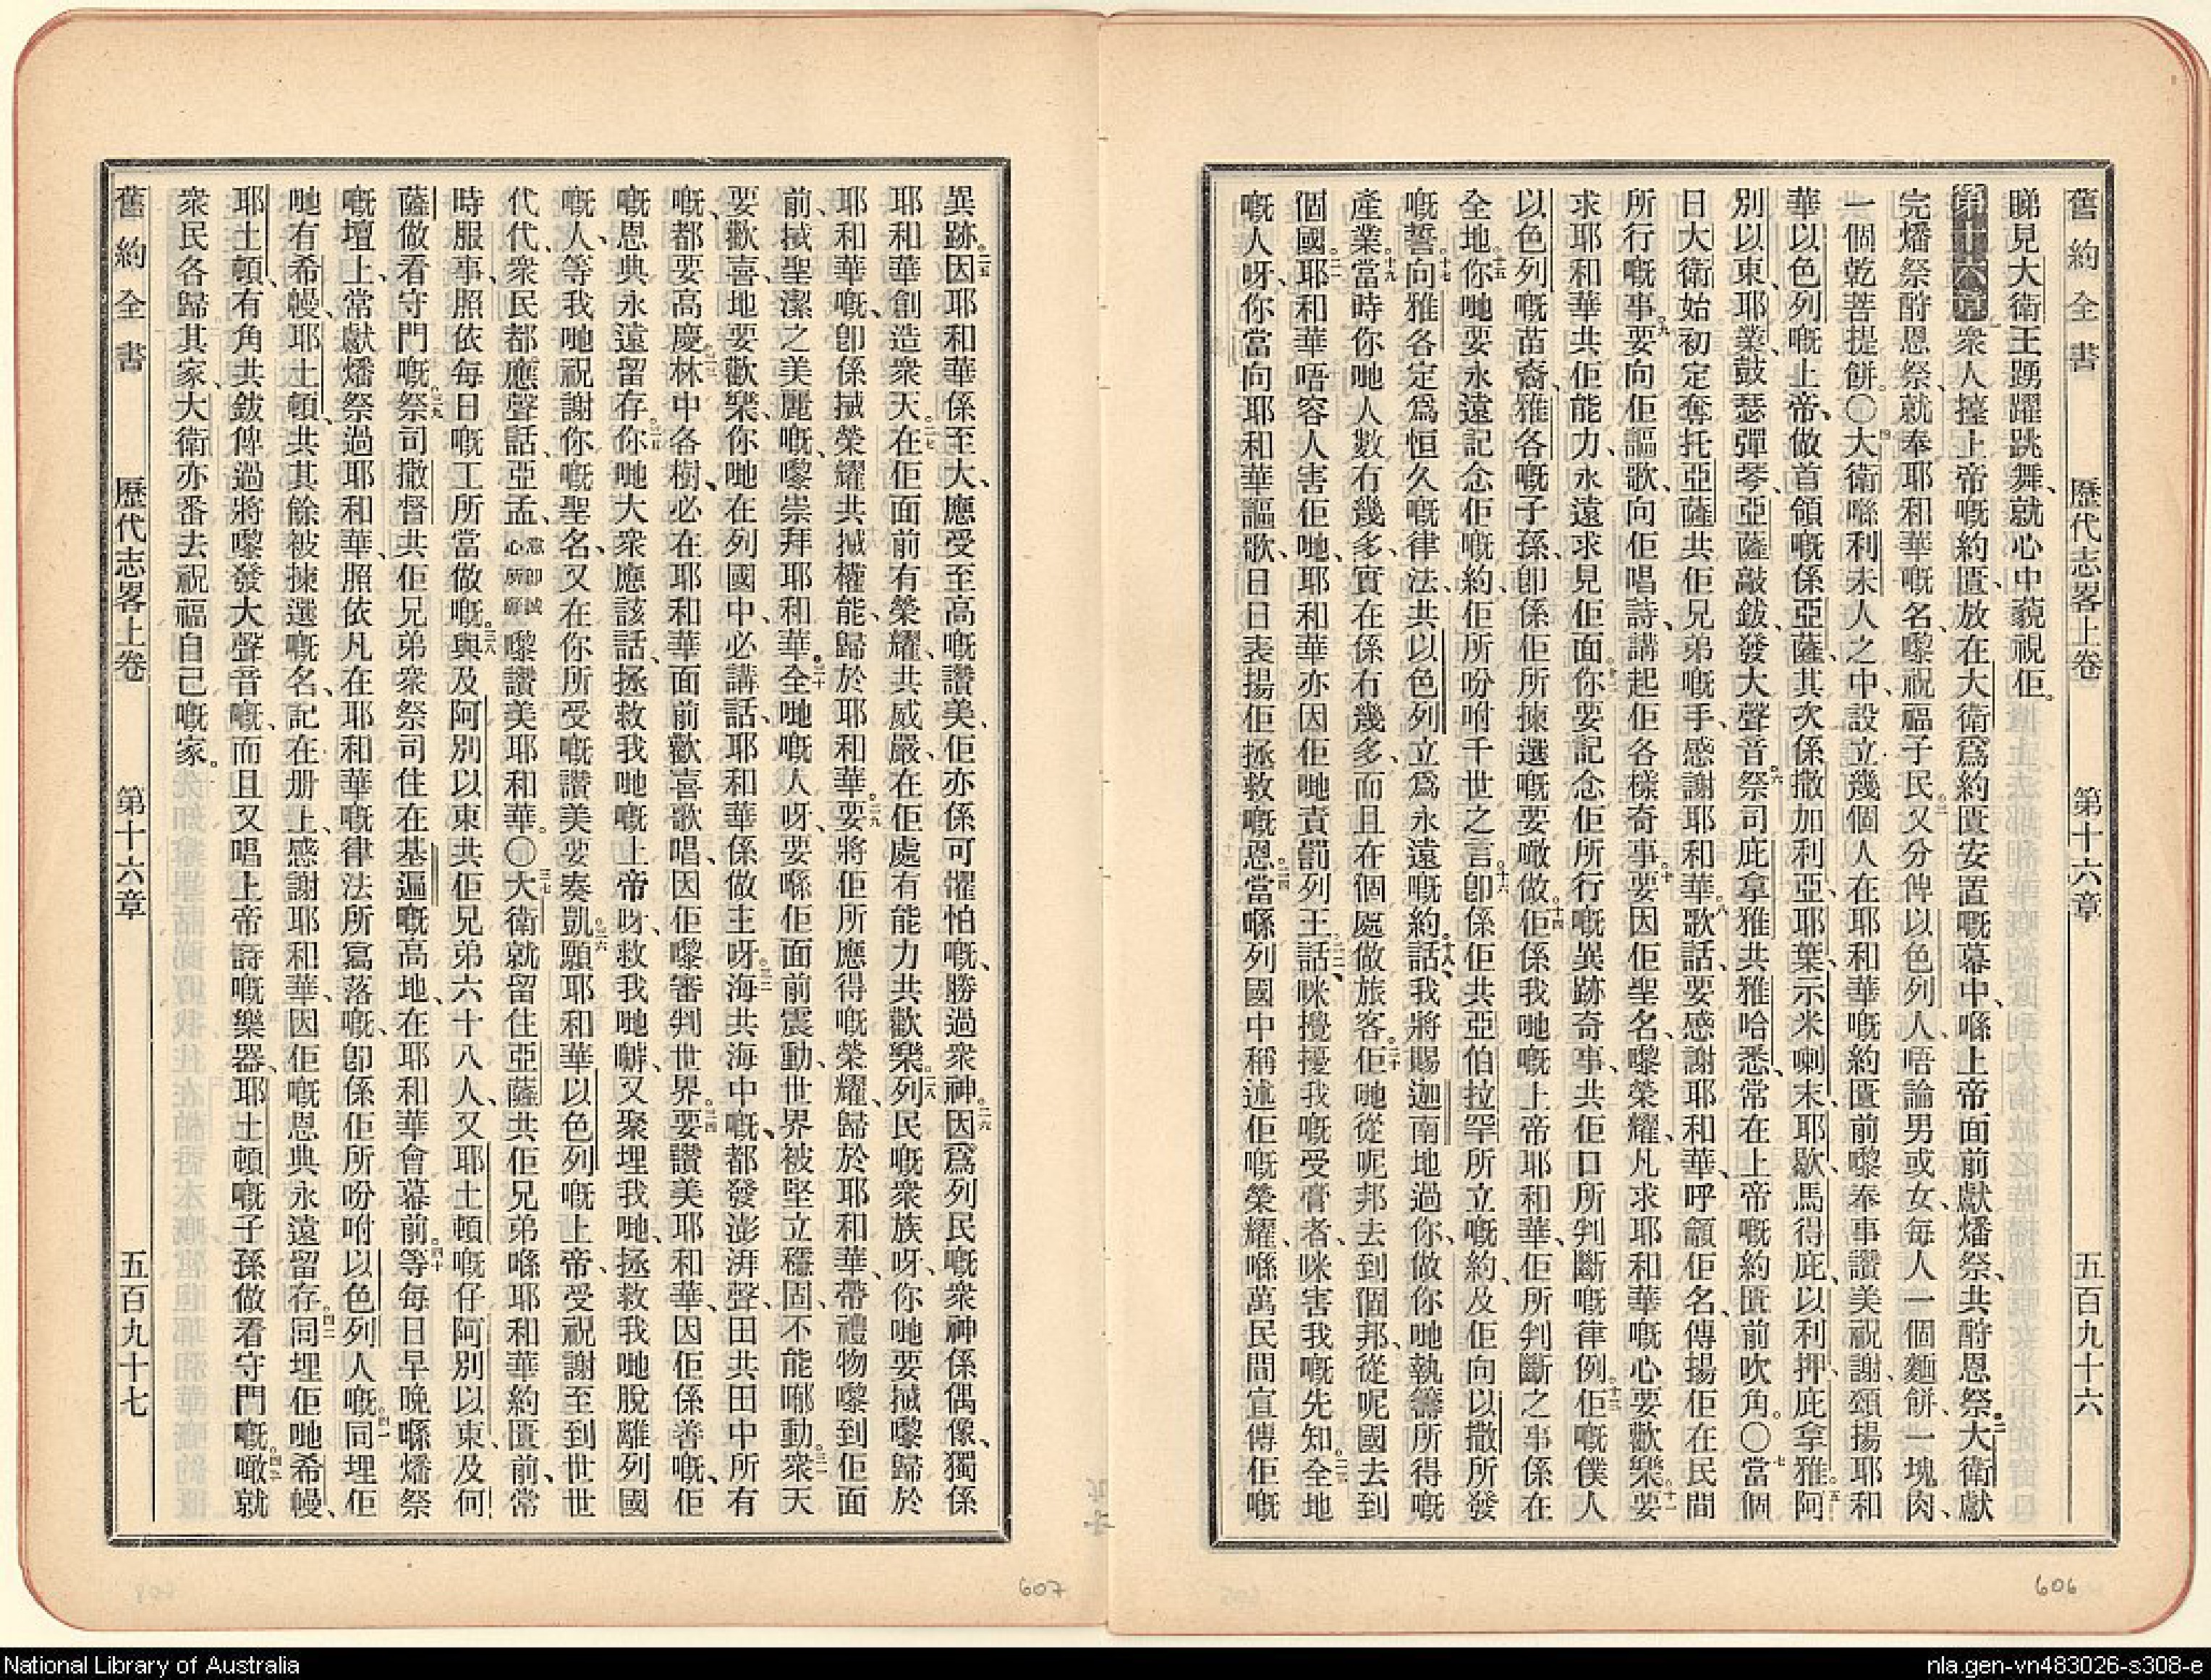 舊約全書　歷代志畧上卷　第十六章　五百九十六
睇見大衛王踴躍跳舞、就心中藐視佢。
第十六章　衆人擡上帝嘅約匱、放在大衛爲約匱安置嘅幕中、喺上帝面前獻燔祭、共酧恩祭。二大衛獻
完燔祭酧恩祭、就奉耶和華嘅名、嚟祝福子民。三又分俾以色列人、唔論男或女、每人一個麵餅、一塊肉、
一個乾菩提餅。〇四大衛喺利未人之中、設立幾個人在耶和華嘅約匱前、嚟奉事讚美祝謝、頌揚耶和
華以色列嘅上帝、做首領嘅係亞薩、其次係撒加利亞、耶葉、示米喇末、耶歇、馬得庇、以利押、庇拿雅、五阿
別以東、耶業、鼓瑟彈琴、亞薩敲鈸、發大聲音。六祭司庇拿雅共雅哈悉、常在上帝嘅約匱前吹角。〇七當個
日大衛始初定奪、托亞薩共佢兄弟嘅手、感謝耶和華。八歌話、要感謝耶和華、呼籲佢名、傳揚佢在民間
所行嘅事。九要向佢謳歌、向佢唱詩、講起佢各樣奇事。十要因佢聖名、嚟榮耀、凡求耶和華嘅心要歡樂。十一要
求耶和華共佢能力、永遠求見佢面。十二你要記念佢所行嘅異跡奇事、共佢口所判斷嘅律例。十三佢嘅僕人
以色列嘅苗裔、雅各嘅子孫、卽係佢所揀選嘅要噉做。十四佢係我哋嘅上帝耶和華、佢所判斷之事係在
全地。十五你哋要永遠記念佢嘅約、佢所吩咐千世之言。十六卽係佢共亞伯拉罕所立嘅約、及佢向以撒所發
嘅誓。十七向雅各定爲恒久嘅律法、共以色列立爲永遠嘅約。十八話、我將賜迦南地過你、做你哋執籌所得嘅
產業。十九當時你哋人數有幾多、實在係冇幾多、而且在個處做旅客。二十佢哋從呢邦去到個邦、從呢國去到
個國。二一耶和華唔容人害佢哋、耶和華亦因佢哋責罰列王。二二話、咪攪擾我嘅受膏者、咪害我嘅先知。二三全地
嘅人呀、你當向耶和華謳歌、日日表揚佢拯救嘅恩。二四當喺列國中稱述佢嘅榮耀、喺萬民間宣傳佢嘅
異跡。二五因耶和華係至大、應受至高嘅讚美、佢亦係可懼怕嘅、勝過衆神。二六因爲列民嘅衆神係偶像、獨係
耶和華創造衆天。二七在佢面前有榮耀、共威嚴、在佢處有能力共歡樂。二八列民嘅衆族呀、你哋要搣嚟歸於
耶和華嘅、卽係搣榮耀共搣權能、歸於耶和華。二九要將佢所應得嘅榮耀、歸於耶和華、帶禮物嚟到佢面
前、搣聖潔之美麗嘅、嚟崇拜耶和華。三十全哋嘅人呀、要喺佢面前震動、世界被堅立穩固、不能郁動。三一衆天
要歡喜、地要歡樂、你哋在列國中、必講話、耶和華係做主呀。三二海共海中嘅、都發澎湃聲、田共田中所有
嘅、都要高慶。三三林中各樹、必在耶和華面前歡喜歌唱、因佢嚟審判世界。三四要讚美耶和華、因佢係善嘅、佢
嘅恩典永遠留存。三五你哋大衆應該話、拯救我哋嘅上帝呀、救我哋嚹、又聚埋我哋、拯救我哋脫離列國
嘅人、等我哋祝謝你嘅聖名、又在你所受嘅讚美要奏凱。三六願耶和華以色列嘅上帝、受祝謝至到世世
代代、衆民都應聲話、亞孟、意卽誠心所願嚟讚美耶和華。〇三七大衛就留住亞薩共佢兄弟喺耶和華約匱前、常
時服事、照依每日嘅工所當做嘅。三八與及阿別以東共佢兄弟六十八人、又耶土頓嘅仔阿別以東、及何
薩做看守門嘅。三九祭司撒督共佢兄弟衆祭司住在基遍嘅高地、在耶和華會幕前。四十等每日早晚喺燔祭
嘅壇上、常獻燔祭過耶和華、照依凡在耶和華嘅律法所寫落嘅、卽係佢所吩咐以色列人嘅。四一同埋佢
哋有希幔、耶土頓、共其餘被揀選嘅名、記在册上、感謝耶和華、因佢嘅恩典永遠留存。四二同埋佢哋希幔、
耶土頓、有角共鈸俾過將嚟發大聲音嘅、而且又唱上帝詩嘅樂器、耶土頓嘅子孫做看守門嘅。四三噉就
衆民各歸其家、大衛亦番去祝福自己嘅家。
舊約全書　歷代志畧上卷　第十六章　五百九十七
606
607
National Library of Australia
nla.gen-vn483026-s308-e